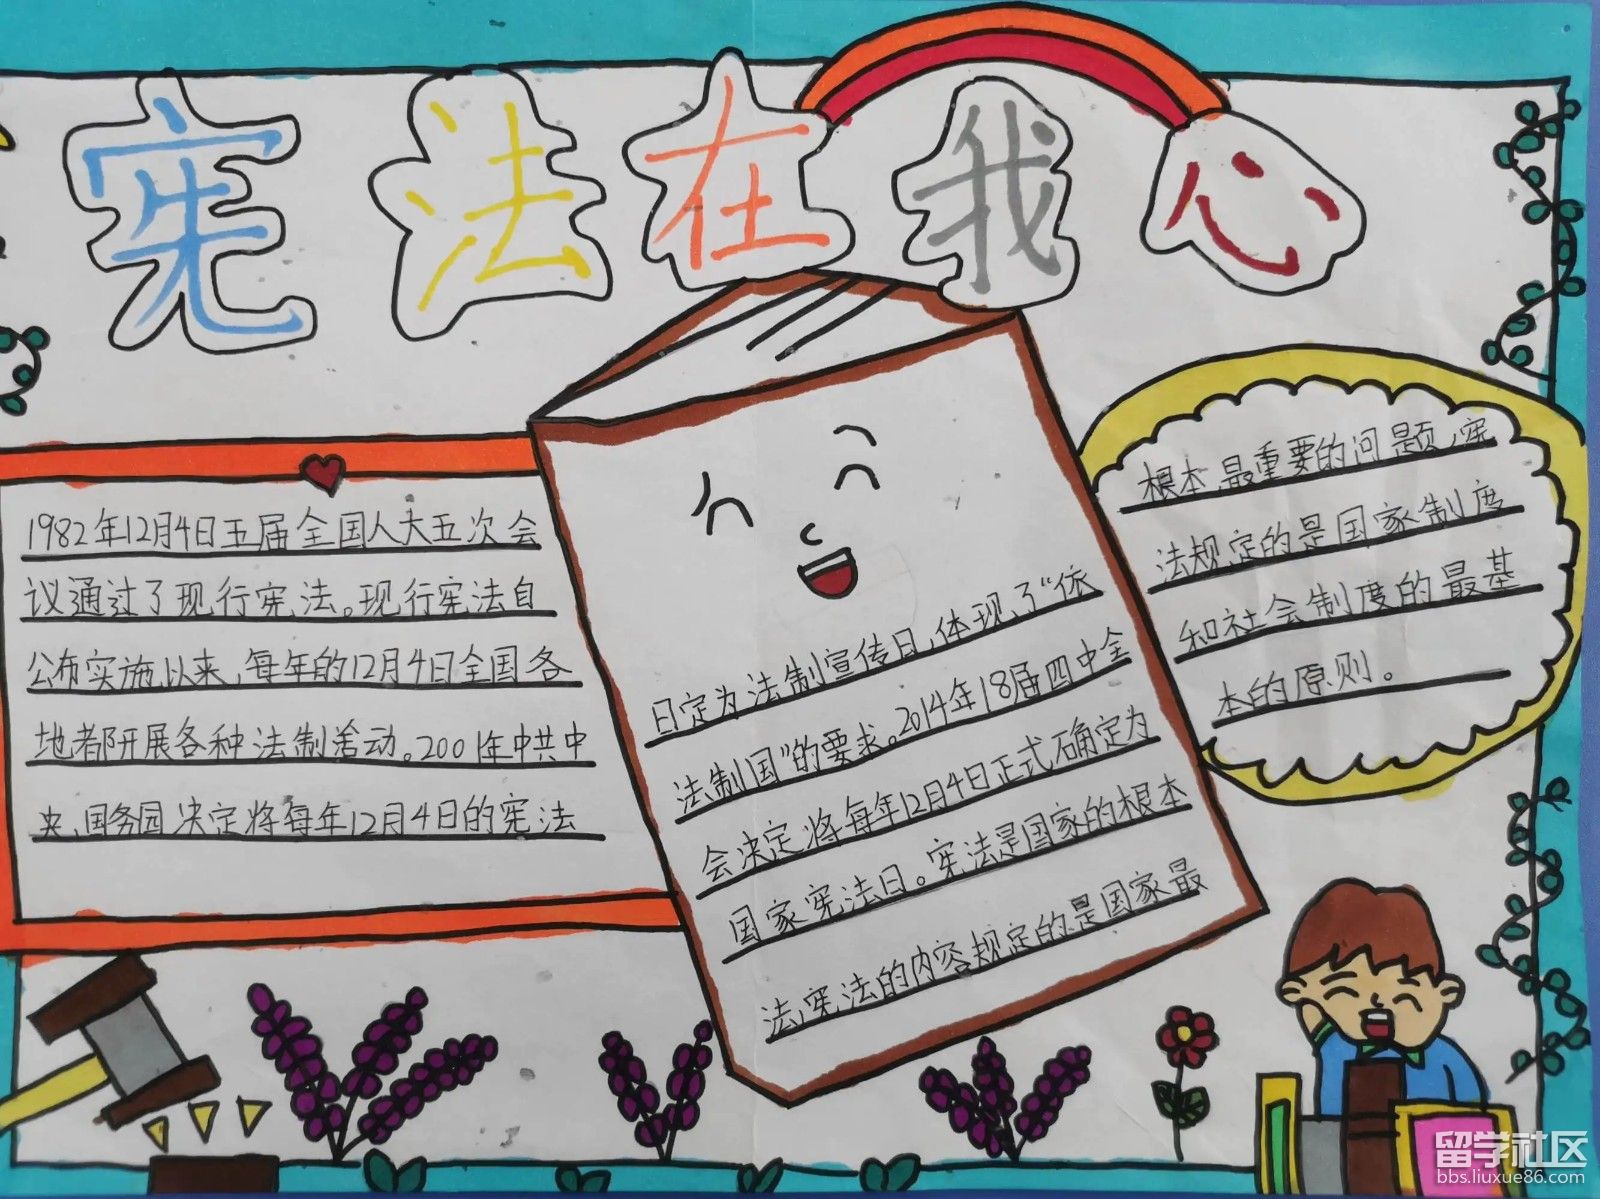 宪法在我心
1982年12月4日五届全国人大五次会
议通过了现行宪法。现行宪法自
公布实施以来,每年的12月4日全国各
地都开展各种法制活动。2001年中共中
央、国务园决定将每年12月4日的宪法
日定为法制宣传日,体现了“依
法制国”的要求。2014年18届四中全
会决定将每年12月4日正式确定为
国家宪法日。宪法是国家的根本
法,宪法的内容规定的是国家最
根本、最重要的问题,宪
法规定的是国家制度
和社会制度的最基
本的原则。
留学社区
bbs.liuxue86.com